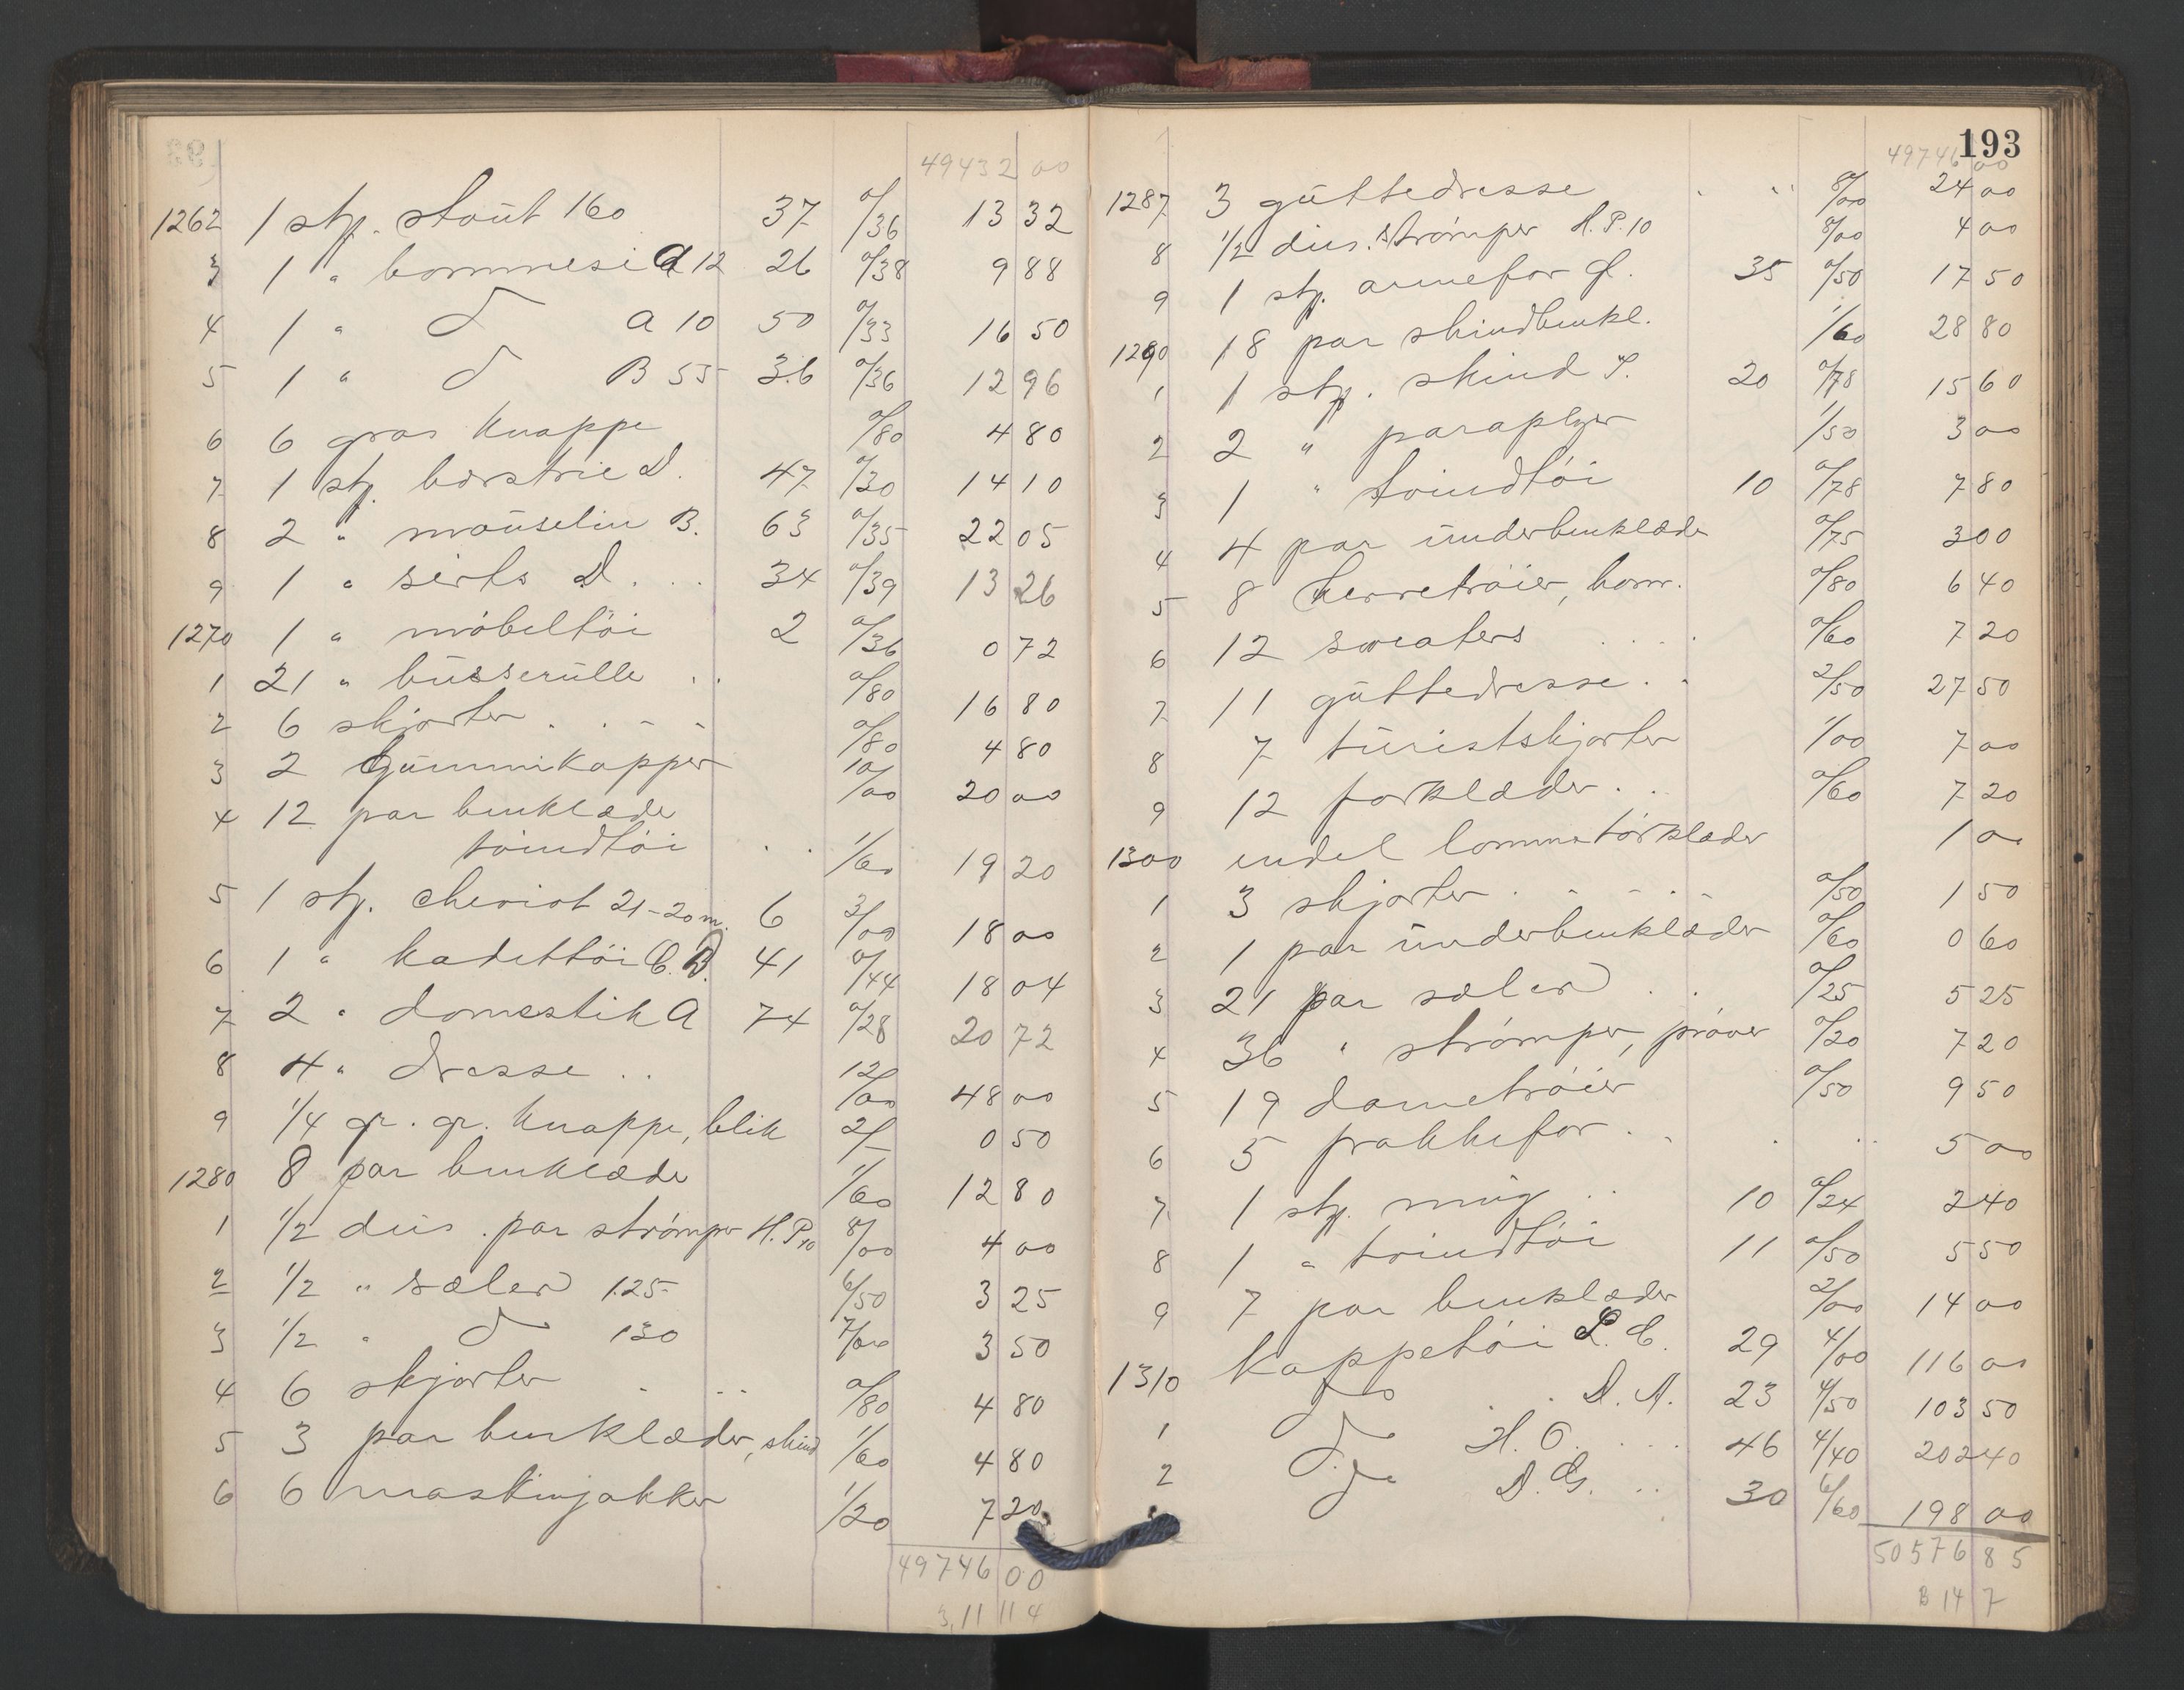 49432 00
1262 1 stk. stout 160 37 0/36 13 32
3 1 " bommesi A 12 26 0/38 9 88
4 1 " do A 10 50 0/33 16 50
5 1 " do B 55 36 0/36 12 96
6 6 gros knappe 0/80 4 80
7 1 stk. børstrie D. 47 0/30 14 10
8 2 " mouselin B. 63 0/35 22 05
9 1 " sirts D. . . 34 0/39 13 26
1270 1 " møbeltøi 2 0/36 0 72
1 21 " busserulle . . 0/80 16 80
2 6 skjorter . . - - 0/80 4 80
3 2 Gummikapper 10/00 20 00
4 12 par benklæder
tvindtøi . . 1/60 19 20
5 1 stk. cheviot 21-20 m. 6 3/00 18 00
6 1 " kadettøi C. D. 41 0/44 18 04
7 2 " domestik A 74 0/28 20 72
8 4 " dresse . . 12/00 48 00
9 1/4 gr. gr. knappe, blik 2/- 0 50
1280 8 par benklæde 1/60 12 80
1 1/2 dus. par strømper H. P. 10 8/00 4 00
2 1/2 " sæler 125 6/50 3 25
3 1/2 " do 130 7/00 3 50
4 6 skjorter - - - 0/80 4 80
5 3 par benklæder, skind 1/60 4 80
6 6 maskinjakker 1/20 7 20
49746 00
3,11 11 4
193
49746 00
1287 3 guttedresse . . . 8/00 24 00
8 1/2 dus. strømper H. P. 10 8/00 4 00
9 1 stk. armefor G. 35 0/50 17 50
1290 18 par skindbenkl. 1/60 28 80
1 1 stk. skind S. 20 0/78 15 60
2 2 " paraplyer 1/50 3 00
3 1 " tvindtøi 10 0/78 7 80
4 4 par underbenklæder 0/75 3 00
5 8 herretrøier, bom. 0/80 6 40
6 12 sweaters . . . . 0/60 7 20
7 11 guttedresse . . 2/50 27 50
8 7 turistskjorter 1/00 7 00
9 12 forklæder . . . 0/60 7 20
1300 endel lommetørklæder 1 00
1 3 skjorter . - - . - 0/50 1 50
2 1 par underbenklæder 0/60 0 60
3 21 par sæler . . 0/25 5 25
4 36 " strømper, prøver 0/20 7 20
5 19 dametrøier 0/50 9 50
6 5 frakkefor . . . . . 5 00
7 1 stk. mug . . 10 0/24 2 40
8 1 " tvindtøi 11 0/50 5 50
9 7 par benklæder 2/00 14 00
1310 kappetøi L. C. 29 4/00 116 00
1 do . . D. A. 23 4/50 103 50
2 do H. O. . . . . 46 4/40 202 40
do D. G. . . 30 6/60 198 00
50576 85
B 14 7